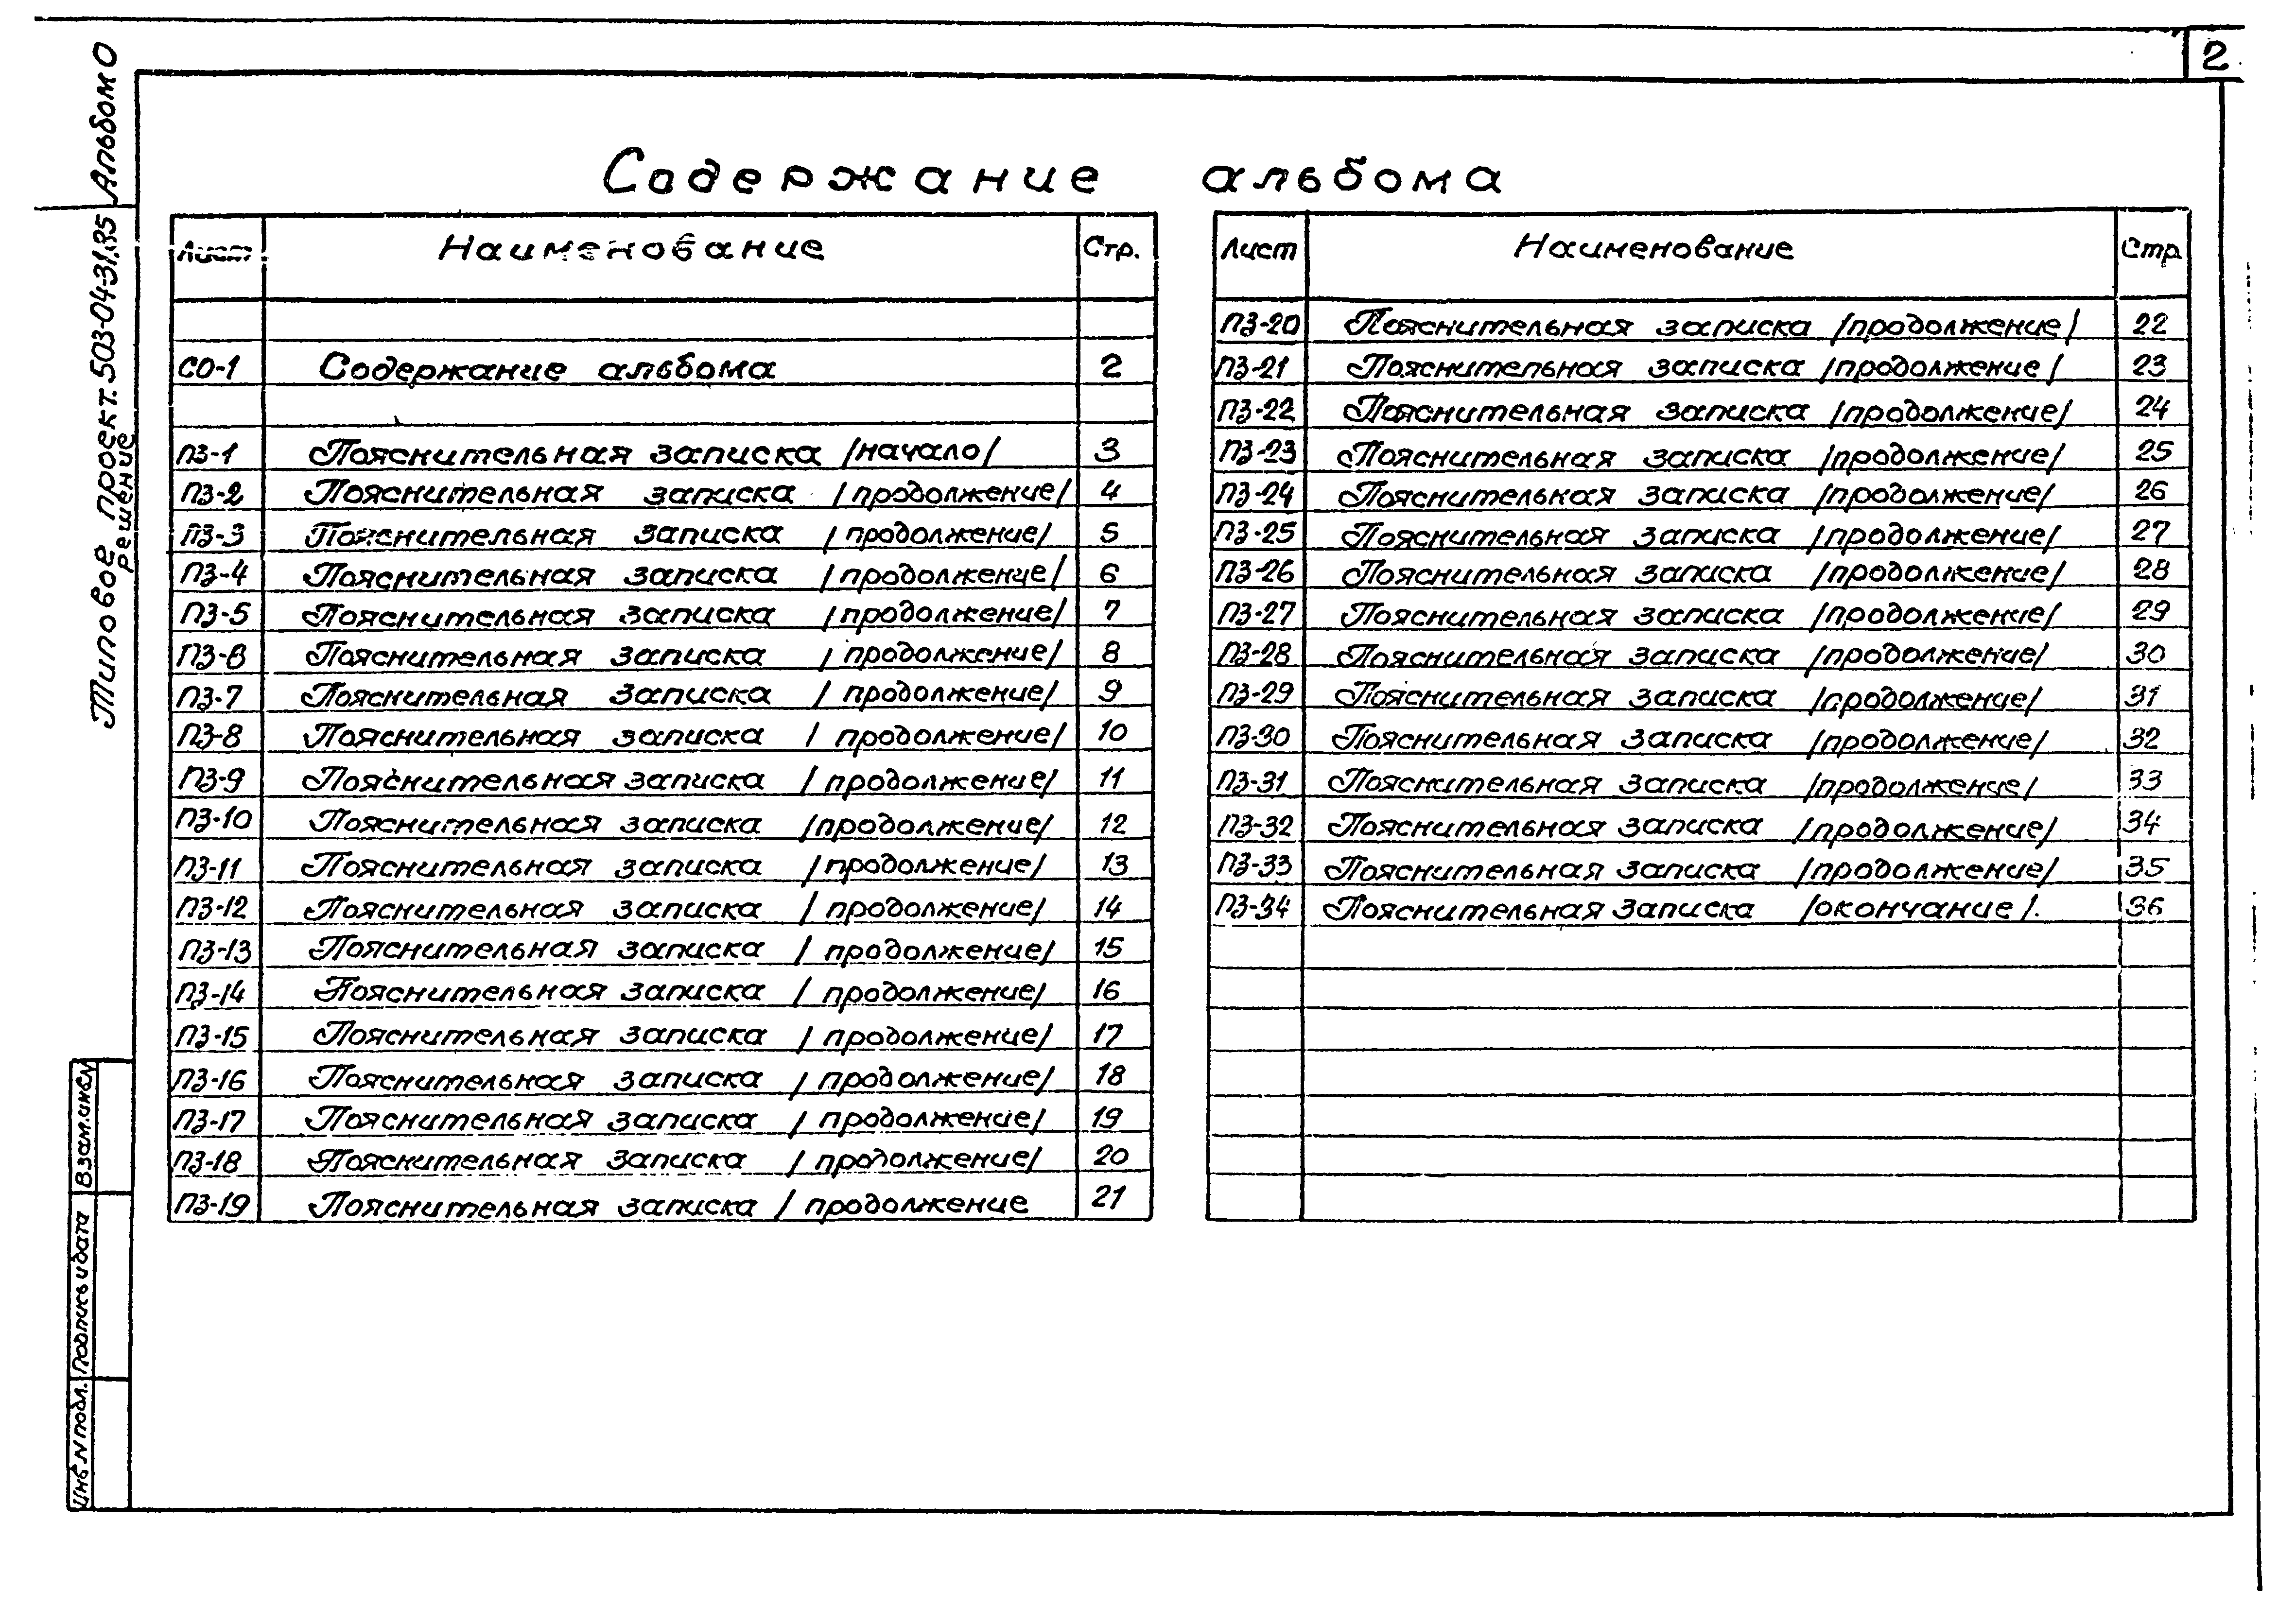 2
Альбом 0
Типовое проект. 503-04-31.85
решение
Содержание альбома
Лист Наименование Стр.
СО-1 Содержание альбома 2
ПЗ-1 Пояснительная записка /начало/ 3
ПЗ-2 Пояснительная записка /продолжение/ 4
ПЗ-3 Пояснительная записка /продолжение/ 5
ПЗ-4 Пояснительная записка /продолжение/ 6
ПЗ-5 Пояснительная записка /продолжение/ 7
ПЗ-6 Пояснительная записка /продолжение/ 8
ПЗ-7 Пояснительная записка /продолжение/ 9
ПЗ-8 Пояснительная записка /продолжение/ 10
ПЗ-9 Пояснительная записка /продолжение/ 11
ПЗ-10 Пояснительная записка /продолжение/ 12
ПЗ-11 Пояснительная записка /продолжение/ 13
ПЗ-12 Пояснительная записка /продолжение/ 14
ПЗ-13 Пояснительная записка /продолжение/ 15
ПЗ-14 Пояснительная записка /продолжение/ 16
ПЗ-15 Пояснительная записка /продолжение/ 17
ПЗ-16 Пояснительная записка /продолжение/ 18
ПЗ-17 Пояснительная записка /продолжение/ 19
ПЗ-18 Пояснительная записка /продолжение/ 20
ПЗ-19 Пояснительная записка /продолжение 21
Лист Наименование Стр
ПЗ-20 Пояснительная записка /продолжение/ 22
ПЗ-21 Пояснительная записка /продолжение/ 23
ПЗ-22 Пояснительная записка /продолжение/ 24
ПЗ-23 Пояснительная записка /продолжение/ 25
ПЗ-24 Пояснительная записка /продолжение/ 26
ПЗ-25 Пояснительная записка /продолжение/ 27
ПЗ-26 Пояснительная записка /продолжение/ 28
ПЗ-27 Пояснительная записка /продолжение/ 29
ПЗ-28 Пояснительная записка /продолжение/ 30
ПЗ-29 Пояснительная записка /продолжение/ 31
ПЗ-30 Пояснительная записка /продолжение/ 32
ПЗ-31 Пояснительная записка /продолжение/ 33
ПЗ-32 Пояснительная записка /продолжение/ 34
ПЗ-33 Пояснительная записка /продолжение/ 35
ПЗ-34 Пояснительная записка /окончание/. 36
Взам.инв.N
Подпись и дата
Инв N подл.